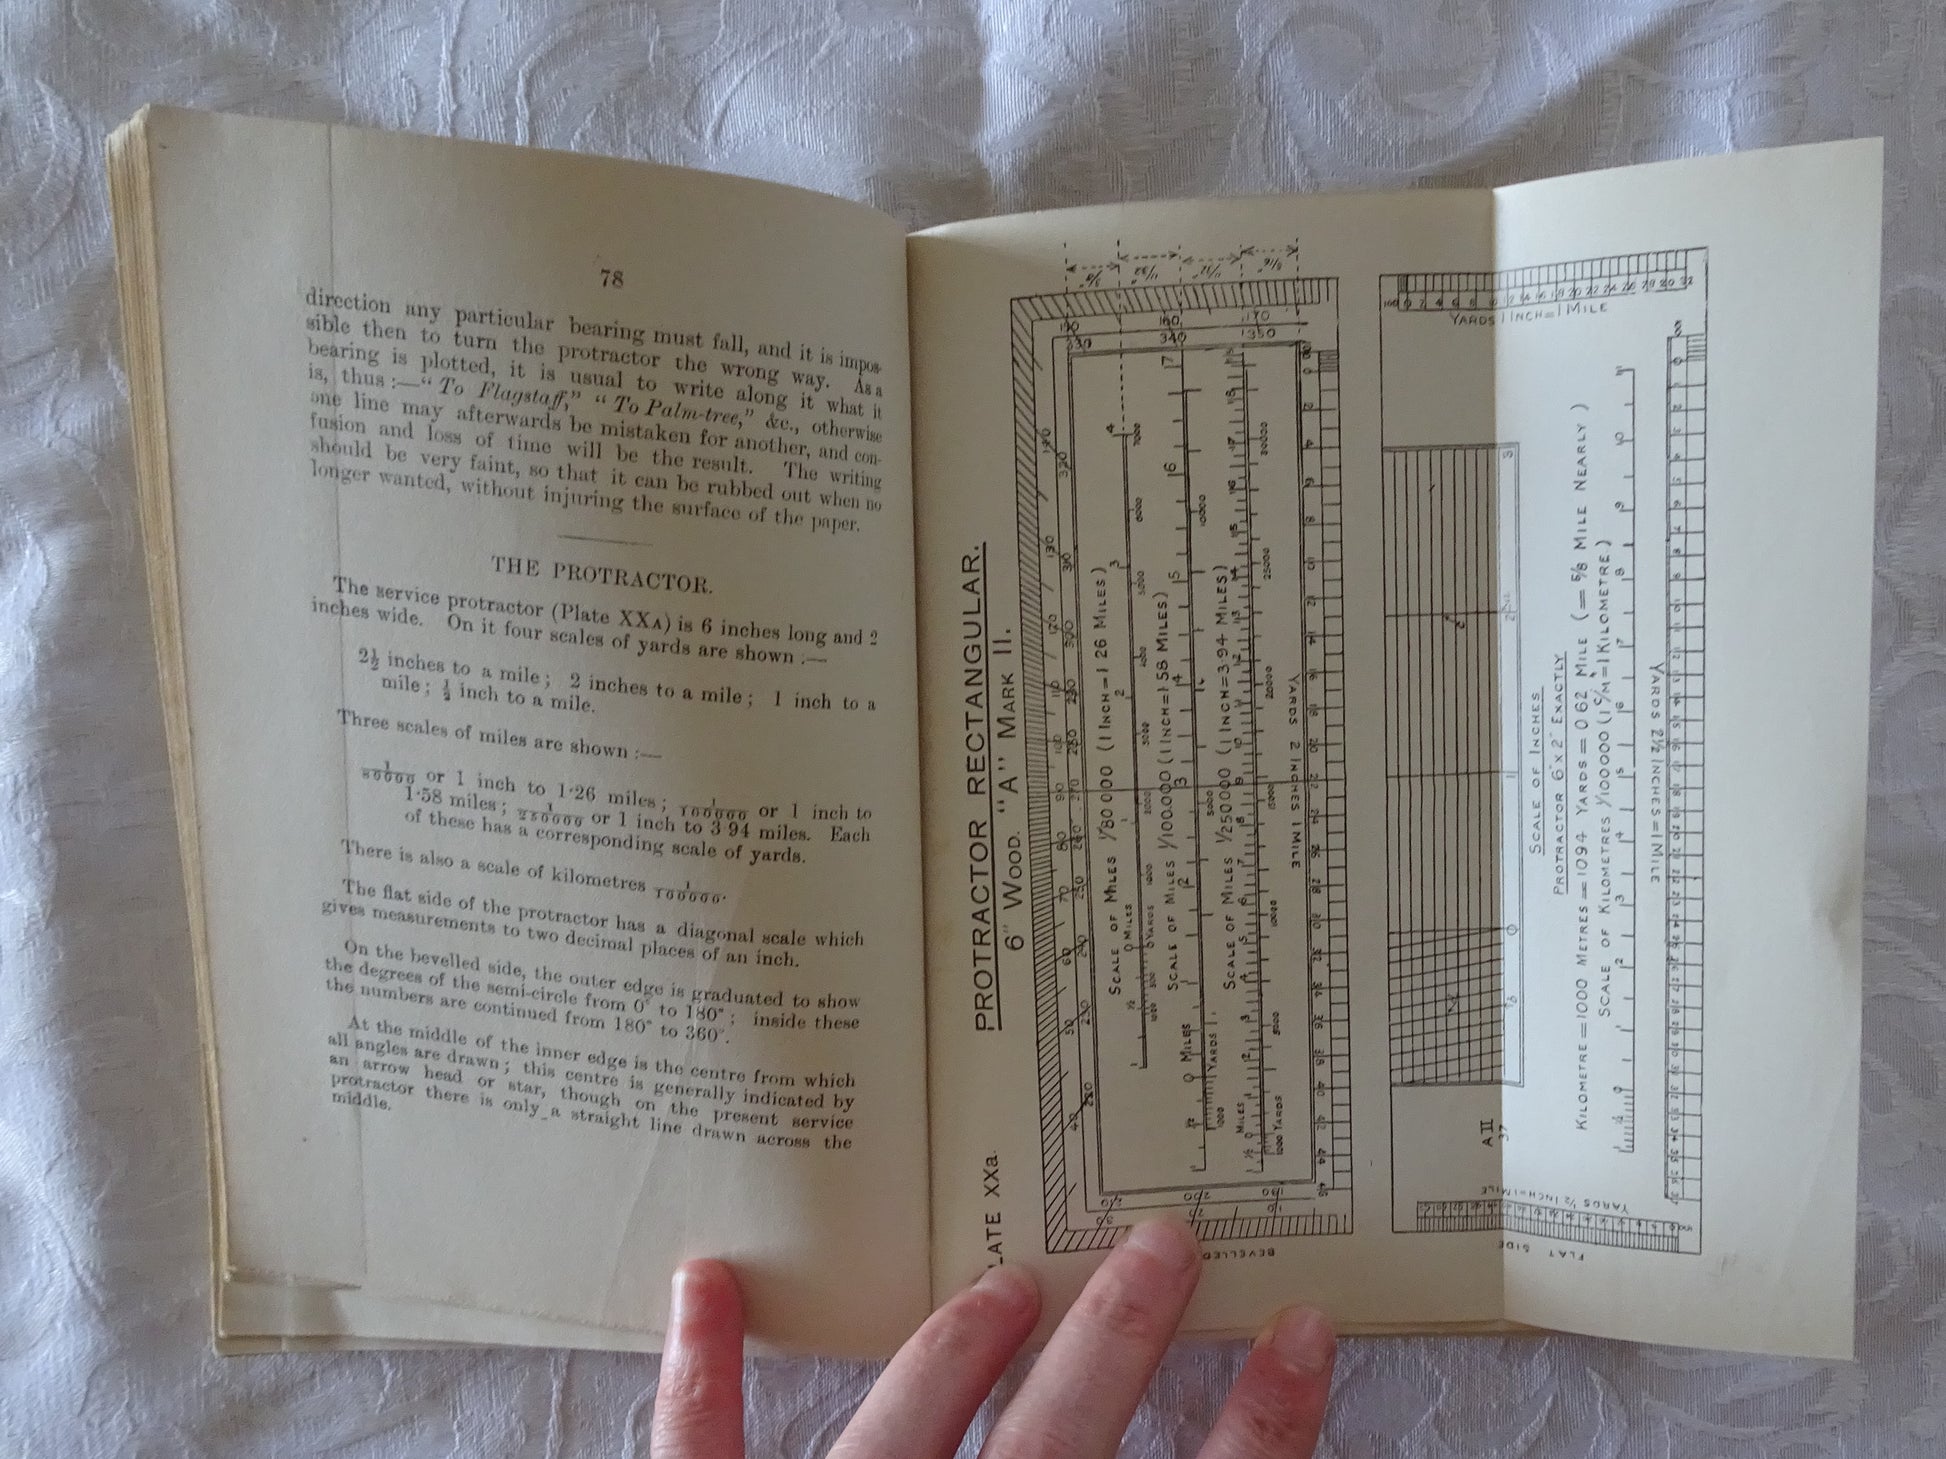 78
direction any particular bearing must fall, and it is impos-
sible then to turn the protractor the wrong way. As a
bearing is plotted, it is usual to write along it what it
is, thus:—“To Flagstaff,” “To Palm-tree,” &c., otherwise
one line may afterwards be mistaken for another, and con-
fusion and loss of time will be the result. The writing
should be very faint, so that it can be rubbed out when no
longer wanted, without injuring the surface of the paper.
THE PROTRACTOR.
The service protractor (Plate XXA) is 6 inches long and 2
inches wide. On it four scales of yards are shown:—
2½ inches to a mile; 2 inches to a mile; 1 inch to a
mile; ½ inch to a mile.
Three scales of miles are shown:—
1/80000 or 1 inch to 1·26 miles; 1/100000 or 1 inch to
1·58 miles; 1/250000 or 1 inch to 3·94 miles. Each
of these has a corresponding scale of yards.
There is also a scale of kilometres 1/100000.
The flat side of the protractor has a diagonal scale which
gives measurements to two decimal places of an inch.
On the bevelled side, the outer edge is graduated to show
the degrees of the semi-circle from 0° to 180°; inside these
the numbers are continued from 180° to 360°.
At the middle of the inner edge is the centre from which
all angles are drawn; this centre is generally indicated by
an arrow head or star, though on the present service
protractor there is only a straight line drawn across the
middle.
LATE XXa.
PROTRACTOR RECTANGULAR.
6" WOOD. "A" MARK II.
SCALE OF MILES 1/80000 (1 INCH=1.26 MILES)
SCALE OF MILES 1/100.000 (1 INCH=1.58 MILES)
SCALE OF MILES 1/250000 (1 INCH=3.94 MILES)
YARDS 2 INCHES 1 MILE
BEVELLED
YARDS 1 INCH=1 MILE
A II
37
SCALE OF INCHES
PROTRACTOR 6"x 2" EXACTLY
KILOMETRE=1000 METRES=1094 YARDS=0.62 MILE (= 5/8 MILE NEARLY)
SCALE OF KILOMETRES 1/100000 (1 C/M=1 KILOMETRE)
YARDS 2½ INCHES=1 MILE
YARDS ½ INCH=1 MILE
FLAT SIDE